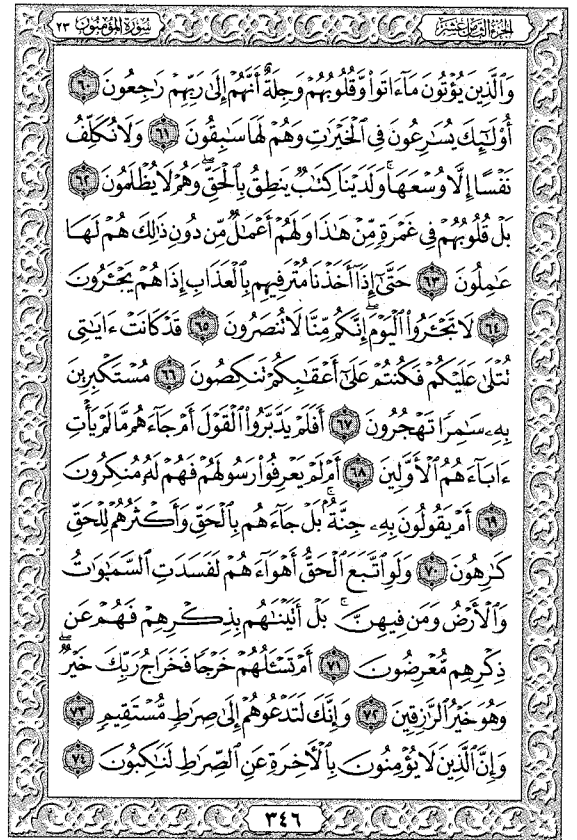 الجزء الثامن عشر
سورة المؤمنون ٢٣
وَٱلَّذِينَ يُؤۡتُونَ مَآءَاتَواْ وَّقُلُوبُهُمۡ وَجِلَةٌ أَنَّهُمۡ إِلَىٰ رَبِّهِمۡ رَٰجِعُونَ ٦٠
أُوْلَٰٓئِكَ يُسَٰرِعُونَ فِي ٱلۡخَيۡرَٰتِ وَهُمۡ لَهَا سَٰبِقُونَ ٦١ وَلَا نُكَلِّفُ
نَفۡسًا إِلَّا وُسۡعَهَاۚ وَلَدَيۡنَا كِتَٰبٞ يَنطِقُ بِٱلۡحَقِّۖ وَهُمۡ لَا يُظۡلَمُونَ ٦٢
بَلۡ قُلُوبُهُمۡ فِي غَمۡرَةٖ مِّنۡ هَٰذَا وَلَهُمۡ أَعۡمَٰلٞ مِّن دُونِ ذَٰلِكَ هُمۡ لَهَا
عَٰمِلُونَ ٦٣ حَتَّىٰٓ إِذَآ أَخَذۡنَا مُتۡرَفِيهِم بِٱلۡعَذَابِ إِذَا هُمۡ يَجۡـَٔرُونَ
٦٤ لَا تَجۡـَٔرُواْ ٱلۡيَوۡمَۖ إِنَّكُم مِّنَّا لَا تُنصَرُونَ ٦٥ قَدۡ كَانَتۡ ءَايَٰتِي
تُتۡلَىٰ عَلَيۡكُمۡ فَكُنتُمۡ عَلَىٰٓ أَعۡقَٰبِكُمۡ تَنكِصُونَ ٦٦ مُسۡتَكۡبِرِينَ
بِهِۦ سَٰمِرٗا تَهۡجُرُونَ ٦٧ أَفَلَمۡ يَدَّبَّرُواْ ٱلۡقَوۡلَ أَمۡ جَآءَهُم مَّا لَمۡ يَأۡتِ
ءَابَآءَهُمُ ٱلۡأَوَّلِينَ ٦٨ أَمۡ لَمۡ يَعۡرِفُواْ رَسُولَهُمۡ فَهُمۡ لَهُۥ مُنكِرُونَ
٦٩ أَمۡ يَقُولُونَ بِهِۦ جِنَّةُۢۚ بَلۡ جَآءَهُم بِٱلۡحَقِّ وَأَكۡثَرُهُمۡ لِلۡحَقِّ
كَٰرِهُونَ ٧٠ وَلَوِ ٱتَّبَعَ ٱلۡحَقُّ أَهۡوَآءَهُمۡ لَفَسَدَتِ ٱلسَّمَٰوَٰتُ
وَٱلۡأَرۡضُ وَمَن فِيهِنَّۚ بَلۡ أَتَيۡنَٰهُم بِذِكۡرِهِمۡ فَهُمۡ عَن
ذِكۡرِهِم مُّعۡرِضُونَ ٧١ أَمۡ تَسۡـَٔلُهُمۡ خَرۡجٗا فَخَرَاجُ رَبِّكَ خَيۡرٞۖ
وَهُوَ خَيۡرُ ٱلرَّٰزِقِينَ ٧٢ وَإِنَّكَ لَتَدۡعُوهُمۡ إِلَىٰ صِرَٰطٖ مُّسۡتَقِيمٖ ٧٣
وَإِنَّ ٱلَّذِينَ لَا يُؤۡمِنُونَ بِٱلۡأٓخِرَةِ عَنِ ٱلصِّرَٰطِ لَنَٰكِبُونَ ٧٤
٣٤٦